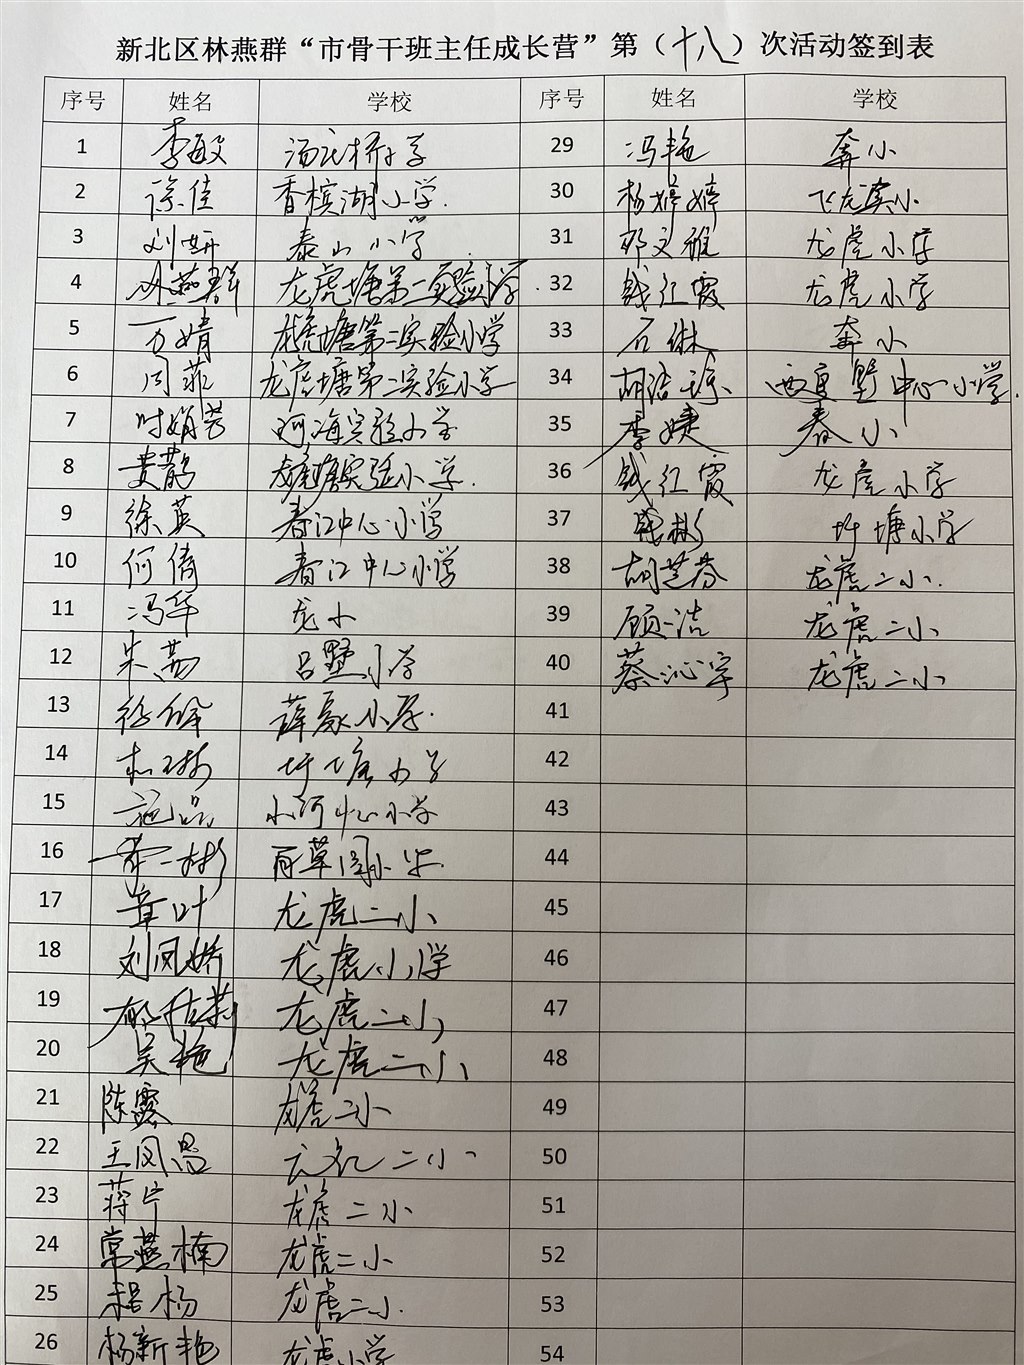 新北区林燕群“市骨干班主任成长营”第（十八）次活动签到表
序号 姓名 学校 序号 姓名 学校
1 李敏 汤庄桥小学 29 冯艳 奔小
2 徐佳 香槟湖小学. 30 杨婷婷 飞龙实小
3 刘妍 泰山小学 31 邓文雅 龙虎小学
4 林燕群 龙虎塘第二实验小学. 32 钱红霞 龙虎小学
5 万婧 龙虎塘第二实验小学 33 石琳 奔小
6 周菲 龙虎塘第二实验小学 34 胡洁琼 西夏墅中心小学.
7 时娟芳 河海实验小学 35 李婕 春小
8 龙虎塘实验小学. 36 钱红霞 龙虎小学
9 徐英 春江中心小学 37 圩塘小学
10 何倩 春江中心小学 38 胡芝芬 龙虎二小.
11 冯华 龙小 39 顾洁 龙虎二小
12 朱茜 吕墅小学 40 蔡沁宇 龙虎二小
13 薛家小学. 41
14 圩塘小学 42
15 施品 小河中心小学 43
16 百草园小学. 44
17 章叶 龙虎二小 45
18 刘凤娇 龙虎小学 46
19 龙虎二小 47
20 吴艳 龙虎二小 48
21 陈露 龙虎二小 49
22 王凤 龙虎二小 50
23 蒋宁 龙虎二小 51
24 常燕楠 龙虎二小 52
25 程杨 龙虎二小. 53
26 杨新艳 龙虎小学 54